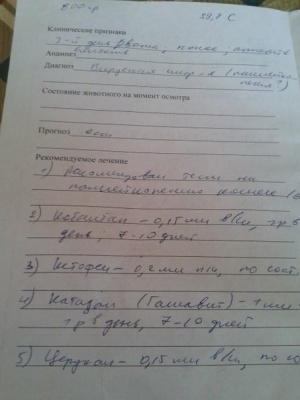 800 гр 39,8 С
Клинические признаки
3-й день рвота, понос,
Анамнез
Диагноз Вирусная инф-я (панлейко
пения?)
Состояние животного на момент осмотра
Прогноз ост
Рекомендуемое лечение
1) Рекомендован тест на
панлейкопению кошек
2) Ковантал - 0,15 мл в/м, 1р в
день, 7-10 дней
3) Кетофен - 0,2 мл п/к, по сост.
4) Катазал (Гамавит) - 1 мл
1 р в день, 7-10 дней
5) Церукал - 0,15 мл в/м, по со